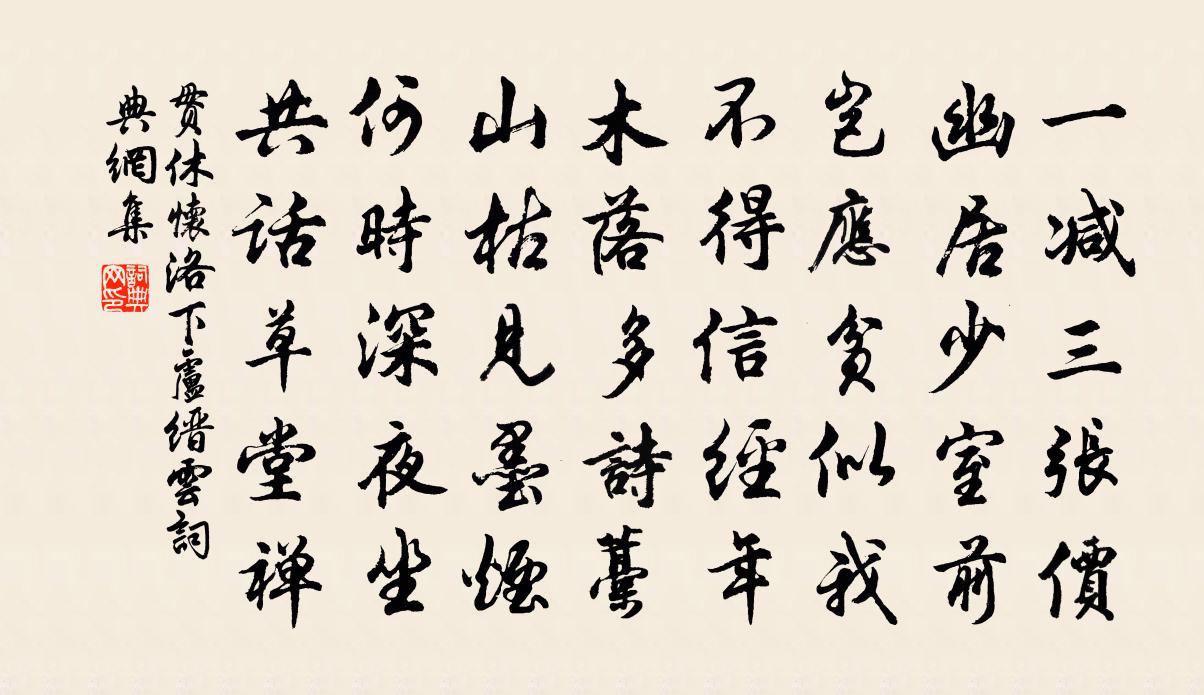 一減三張價
幽居少室前
豈應貧似我
不得信經年
木落多詩藁
山枯見墨煙
何時深夜坐
共話草堂禅
貫休懷洛下盧縉雲詞
典網集
詞典网印